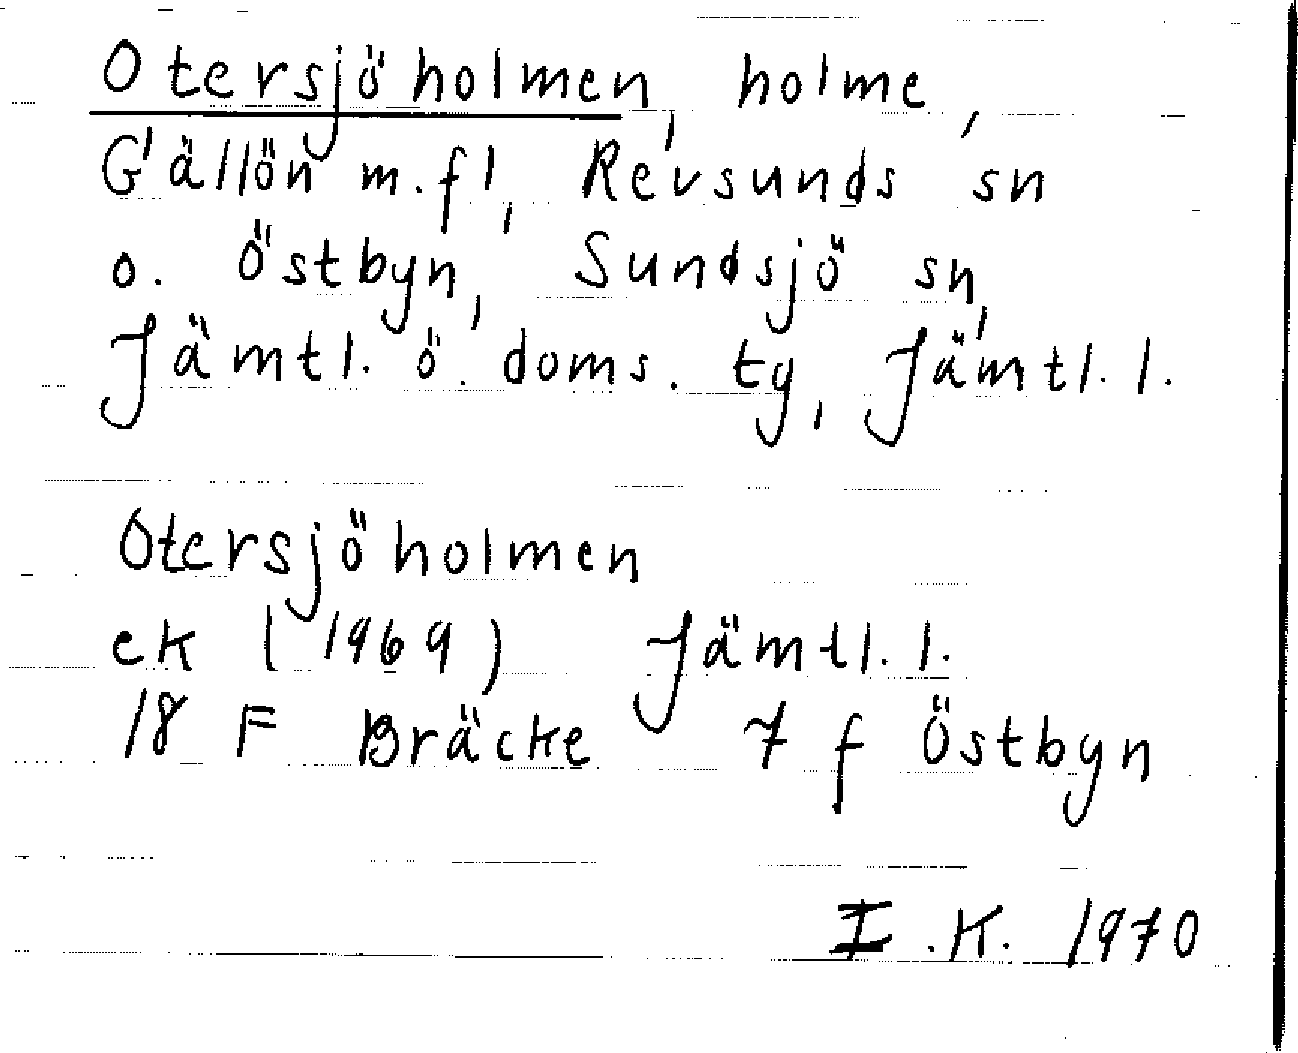 Otersjöholmen, holme,
Gällön m.fl, Revsunds sn
o. Östbyn, Sundsjö sn,
Jämtl. ö. doms. tg, Jämtl. l.
Otersjöholmen
ek (1969) Jämtl. l.
18 F Bräcke 7 f Östbyn
I.K. 1970